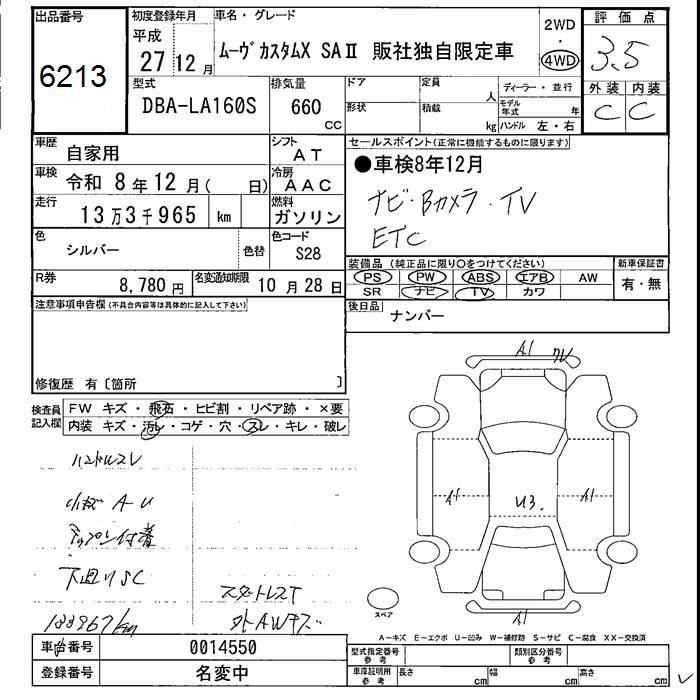 出品番号
6213
初度登録年月
平成
27 12月
車名・グレード
ムーヴ カスタムX SAⅡ 販社独自限定車
2WD
・
4WD
評価点
3.5
外装 内装
C C
型式
DBA-LA160S
排気量
660
cc
ドア
形状
定員
人
積載
kg
ディーラー・並行
モデル年式 年
ハンドル 左・右
車歴
自家用
シフト
AT
車検
令和 8年12月( 日)
冷房
AAC
走行
13万3千965 km
燃料
ガソリン
色
シルバー
色替
色コード
S28
R券
8,780円
名変通知期限
10月28日
セールスポイント(正常に機能するものに限ります)
●車検8年12月
ナビ・Bカメラ・TV
ETC
装備品 (純正品に限り○をつけてください)
PS PW ABS エアB AW
SR ナビ TV カワ
新車保証書
有・無
後日品
ナンバー
注意事項申告欄(不具合内容等は具体的に記入して下さい)
修復歴 有〔箇所 〕
検査員
記入欄
FW キズ・飛石・ヒビ割・リペア跡・×要
内装 キズ・汚レ・コゲ・穴・スレ・キレ・破レ
ハンドルスレ
小キズ A U
下廻りSC
スタートレスT
外AWキズ
A1
A1 U3. A1
A1
スペア
A-キズ E-エクボ U-凹み W-補修跡 S-サビ C-腐食 XX-交換済
車台番号
0014550
登録番号
名変中
型式指定番号
参考
類別区分番号
参考
車庫証明用
参考
長さ cm 幅 cm 高さ cm